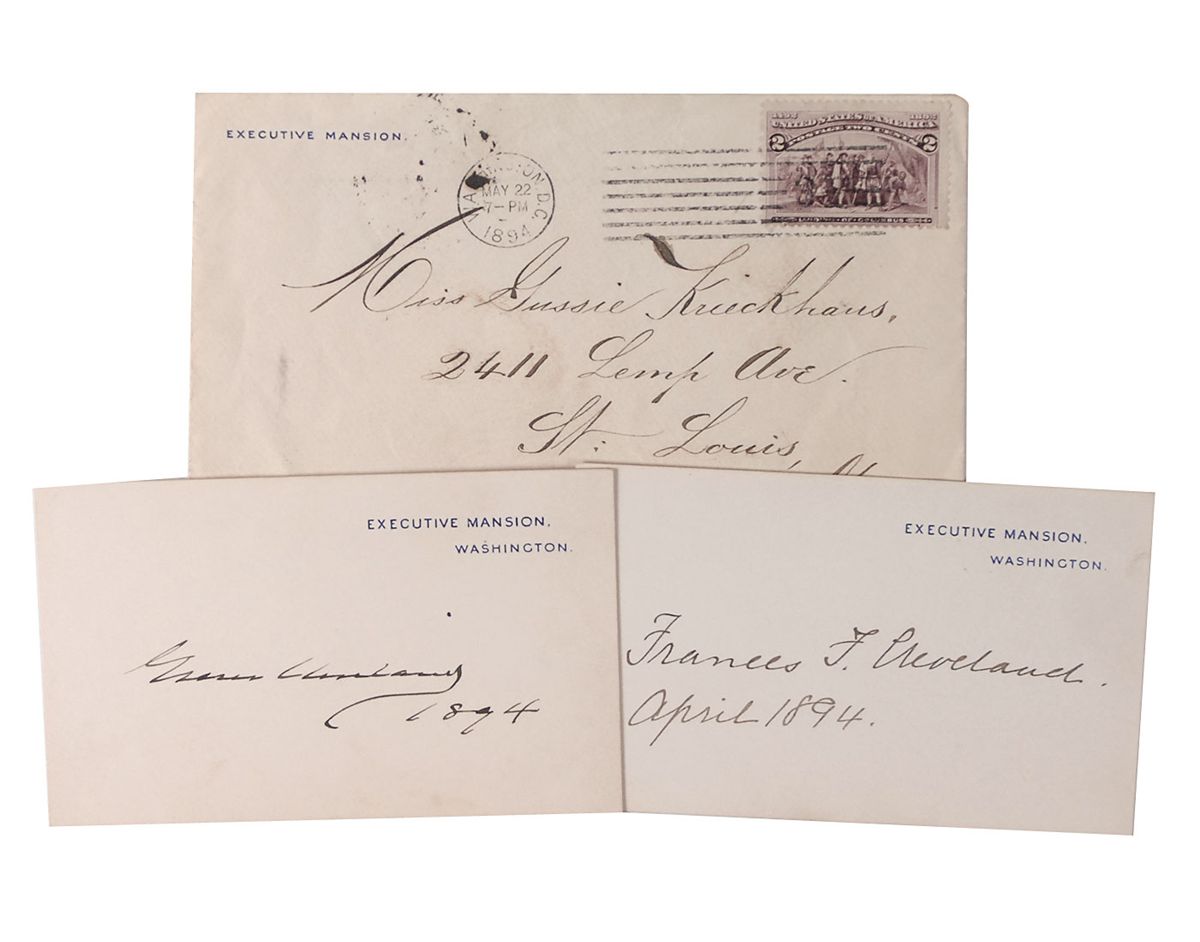 EXECUTIVE MANSION.
WASHINGTON, D.C.
MAY 22
7-PM
1894
1492 1892
UNITED STATES OF AMERICA
POSTAGE TWO CENTS
2 2
LANDING OF COLUMBUS
Miss Gussie Krieckhaus,
2411 Lemp Ave.
St. Louis,
EXECUTIVE MANSION,
WASHINGTON.
Grover Cleveland
1894
EXECUTIVE MANSION,
WASHINGTON.
Frances F. Cleveland.
April 1894.